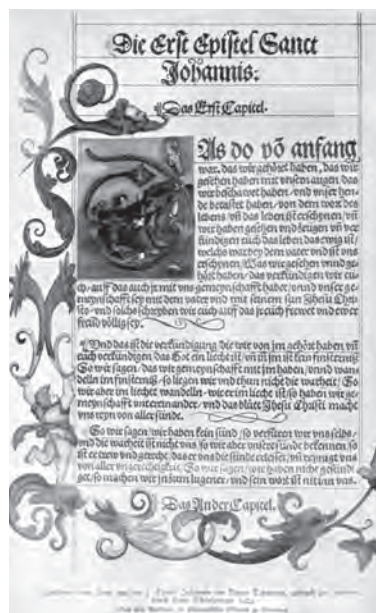 Die Erst Epistel Sanct
Johannis.
Das Erst Capitel.
DAs do võ anfang
war, das wir gehöret haben, das wir
gesehen haben mit vnsern augen, das
wir beschawet haben, vnd vnser hen-
de betastet haben, von dem wort des
lebens, vñ das leben ist erschynen, vñ
wir haben gesehen vnd zeugen vñ ver
kündigen euch das leben das ewig ist,
welchs war bey dem vater vnd ist vns
erschynen, Was wir gesehen vnnd ge-
höret haben, das verkündigen wir eu-
ch, auff das auch jr mit vns gemeynschafft habet, vnnd vnser ge-
meynschafft sey mit dem vater vnd mit seinem sun Jhesu Chri-
sto, vnd solchs schreyben wir euch auff das jr euch frewet vnd ewer
freud völlig sey.
Vnd das ist die verkündigung die wir von jm gehöret haben vñ
euch verkündigen das Got ein liecht ist, vñ in jm ist kein finsterniß
So wir sagen, das wir gemeynschafft mit jm haben, vnnd wan-
delln im finsterniß, so liegen wir vnd thun nicht die warheit, So
wir aber im liecht wandelln, wie er im liecht ist, so haben wir ge-
meynschafft vntereinander, vnd das blůt Jhesu Christi macht
vns reyn von aller sünde.
So wir sagen, wir haben kein sünd, so verfüren wir vns selbs,
vnd die warheit ist nicht vns, so wir aber vnsere sünde bekennen, so
ist er trew vnd gerecht, das er vns die sünde erlesset, vñ reynigt vns
von aller vngerechtigkeit, So wir sagen, wir haben nicht gesündi
get, so machen wir jn zum lugener, vnd sein wort ist nit inn vns.
Das Ander Capitel.